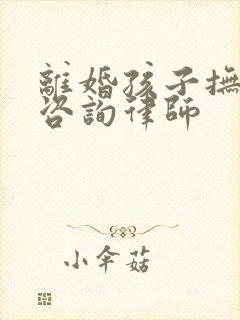 離婚孩子撫
咨詢律師
小傘菇